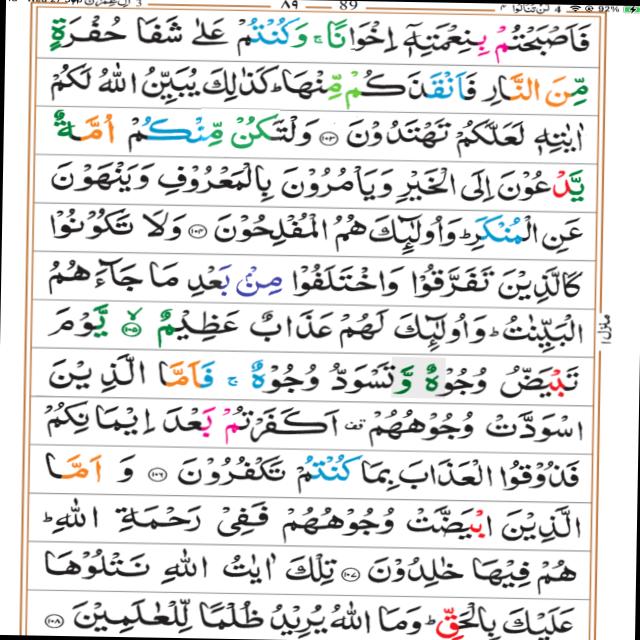 89 ٨٩
فَاَصۡبَحۡتُمۡ بِنِعۡمَتِهٖۤ اِخۡوَانًا ۚ وَكُنۡتُمۡ عَلٰى شَفَا حُفۡرَةٍ
مِّنَ النَّارِ فَاَنۡقَذَكُمۡ مِّنۡهَا ؕ كَذٰلِكَ يُبَيِّنُ اللّٰهُ لَكُمۡ
اٰيٰتِهٖ لَعَلَّكُمۡ تَهۡتَدُوۡنَ ﴿۱۰۳﴾ وَلۡتَكُنۡ مِّنۡكُمۡ اُمَّةٌ
يَّدۡعُوۡنَ اِلَى الۡخَيۡرِ وَيَاۡمُرُوۡنَ بِالۡمَعۡرُوۡفِ وَيَنۡهَوۡنَ
عَنِ الۡمُنۡكَرِ ؕ وَاُولٰٓئِكَ هُمُ الۡمُفۡلِحُوۡنَ ﴿۱۰۴﴾ وَلَا تَكُوۡنُوۡا
كَالَّذِيۡنَ تَفَرَّقُوۡا وَاخۡتَلَفُوۡا مِنۡۢ بَعۡدِ مَا جَآءَهُمُ
الۡبَيِّنٰتُ ؕ وَاُولٰٓئِكَ لَهُمۡ عَذَابٌ عَظِيۡمٌ ﴿۱۰۵﴾ يَّوۡمَ
تَبۡيَضُّ وُجُوۡهٌ وَّتَسۡوَدُّ وُجُوۡهٌ ۚ فَاَمَّا الَّذِيۡنَ
اسۡوَدَّتۡ وُجُوۡهُهُمۡ اَكَفَرۡتُمۡ بَعۡدَ اِيۡمَانِكُمۡ
فَذُوۡقُوا الۡعَذَابَ بِمَا كُنۡتُمۡ تَكۡفُرُوۡنَ ﴿۱۰۶﴾ وَ اَمَّا
الَّذِيۡنَ ابۡيَضَّتۡ وُجُوۡهُهُمۡ فَفِىۡ رَحۡمَةِ اللّٰهِ ؕ
هُمۡ فِيۡهَا خٰلِدُوۡنَ ﴿۱۰۷﴾ تِلۡكَ اٰيٰتُ اللّٰهِ نَتۡلُوۡهَا
عَلَيۡكَ بِالۡحَـقِّ ؕ وَمَا اللّٰهُ يُرِيۡدُ ظُلۡمًا لِّلۡعٰلَمِيۡنَ ﴿۱۰۸﴾